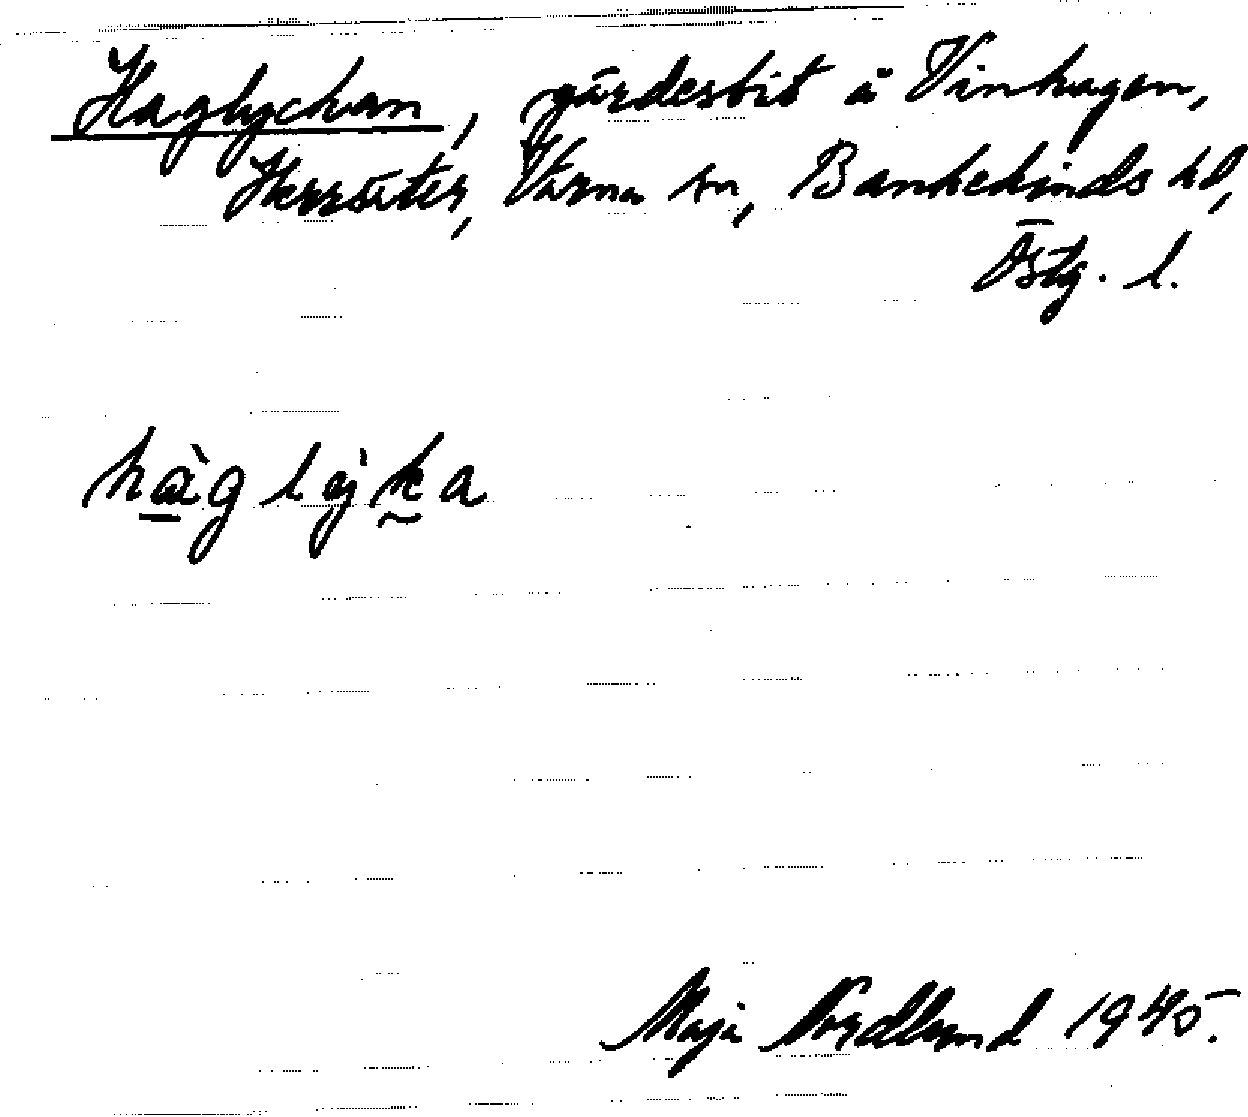 Haglyckan, gärdesbit å Vinhagen,
Herrsäter, Värna sn, Bankekinds hd,
Östg. l.
hàg lỳka
Maja Nordlund 1945.